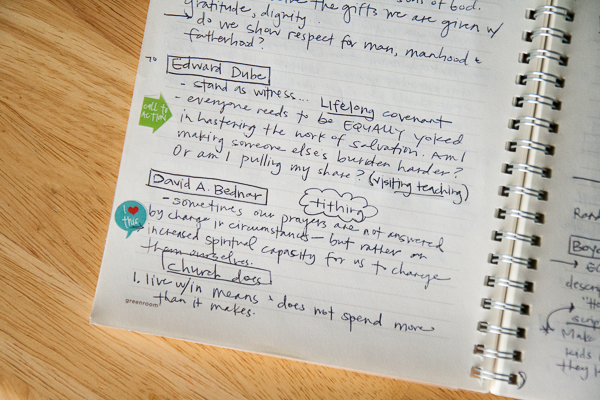 the gifts we are given w/
gratitude, dignity.
do we show respect for man, manhood &
fatherhood?
TO
Edward Dube
- stand as witness... Lifelong covenant
- everyone needs to be EQUALLY yoked
call to
ACTION
in hastening the work of salvation. Am I
making someone elses burden harder?
Or am I pulling my share? (visiting teaching)
David A. Bednar
tithing
- sometimes our prayers are not answered
I
this
by change in circumstances - but rather an
increased spiritual capacity for us to change
them ourselves.
Church does
1. live w/in means & does not spend more
than it makes.
greenroom
Ran
Boy
descri
"He
scrip
Make
kids
they h